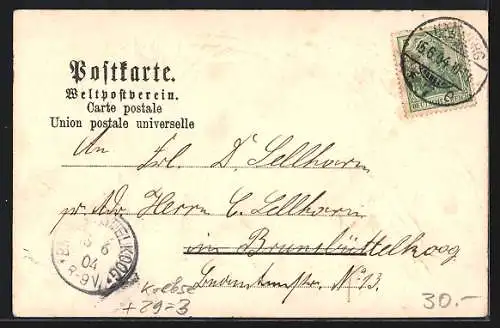 Postkarte.
Weltpostverein.
Carte postale
Union postale universelle
15.6.04
An Frl. D. Sellhorn
pr. Adr Herrn C. Sellhorn
in Brunsbüttelkoog
N. 13.
15 6
04
8-9V
Krebse
+29=3
30.-